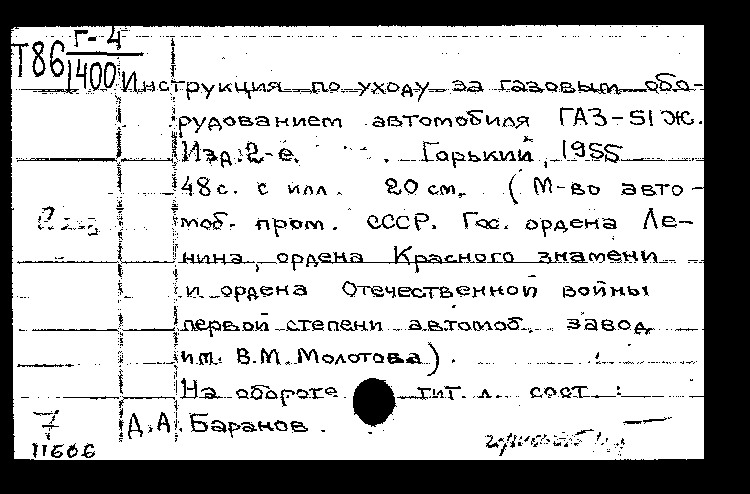 Т86 Г-4
1400
Инструкция по уходу за газовым обо-
рудованием автомобиля ГАЗ-51Ж.
Изд. 2-е. Горький, 1955
48с. с илл. 20 см. (М-во авто-
моб. пром. СССР. Гос. ордена Ле-
нина, ордена Красного знамени
и ордена Отечественной войны
первой степени автомоб. завод
им. В.М. Молотова).
На обороте тит. л. сост.:
Д.А. Баранов.
7
11606